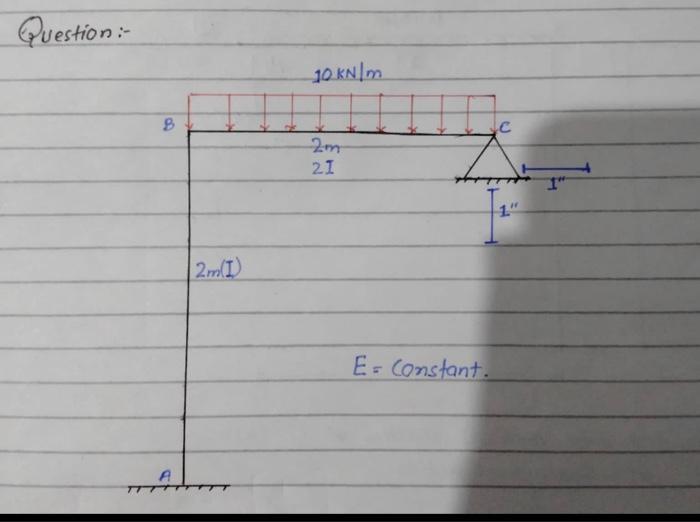 Question:-
10 KN/m
B
C
2m
2I
1"
1"
2m(I)
E = Constant.
A